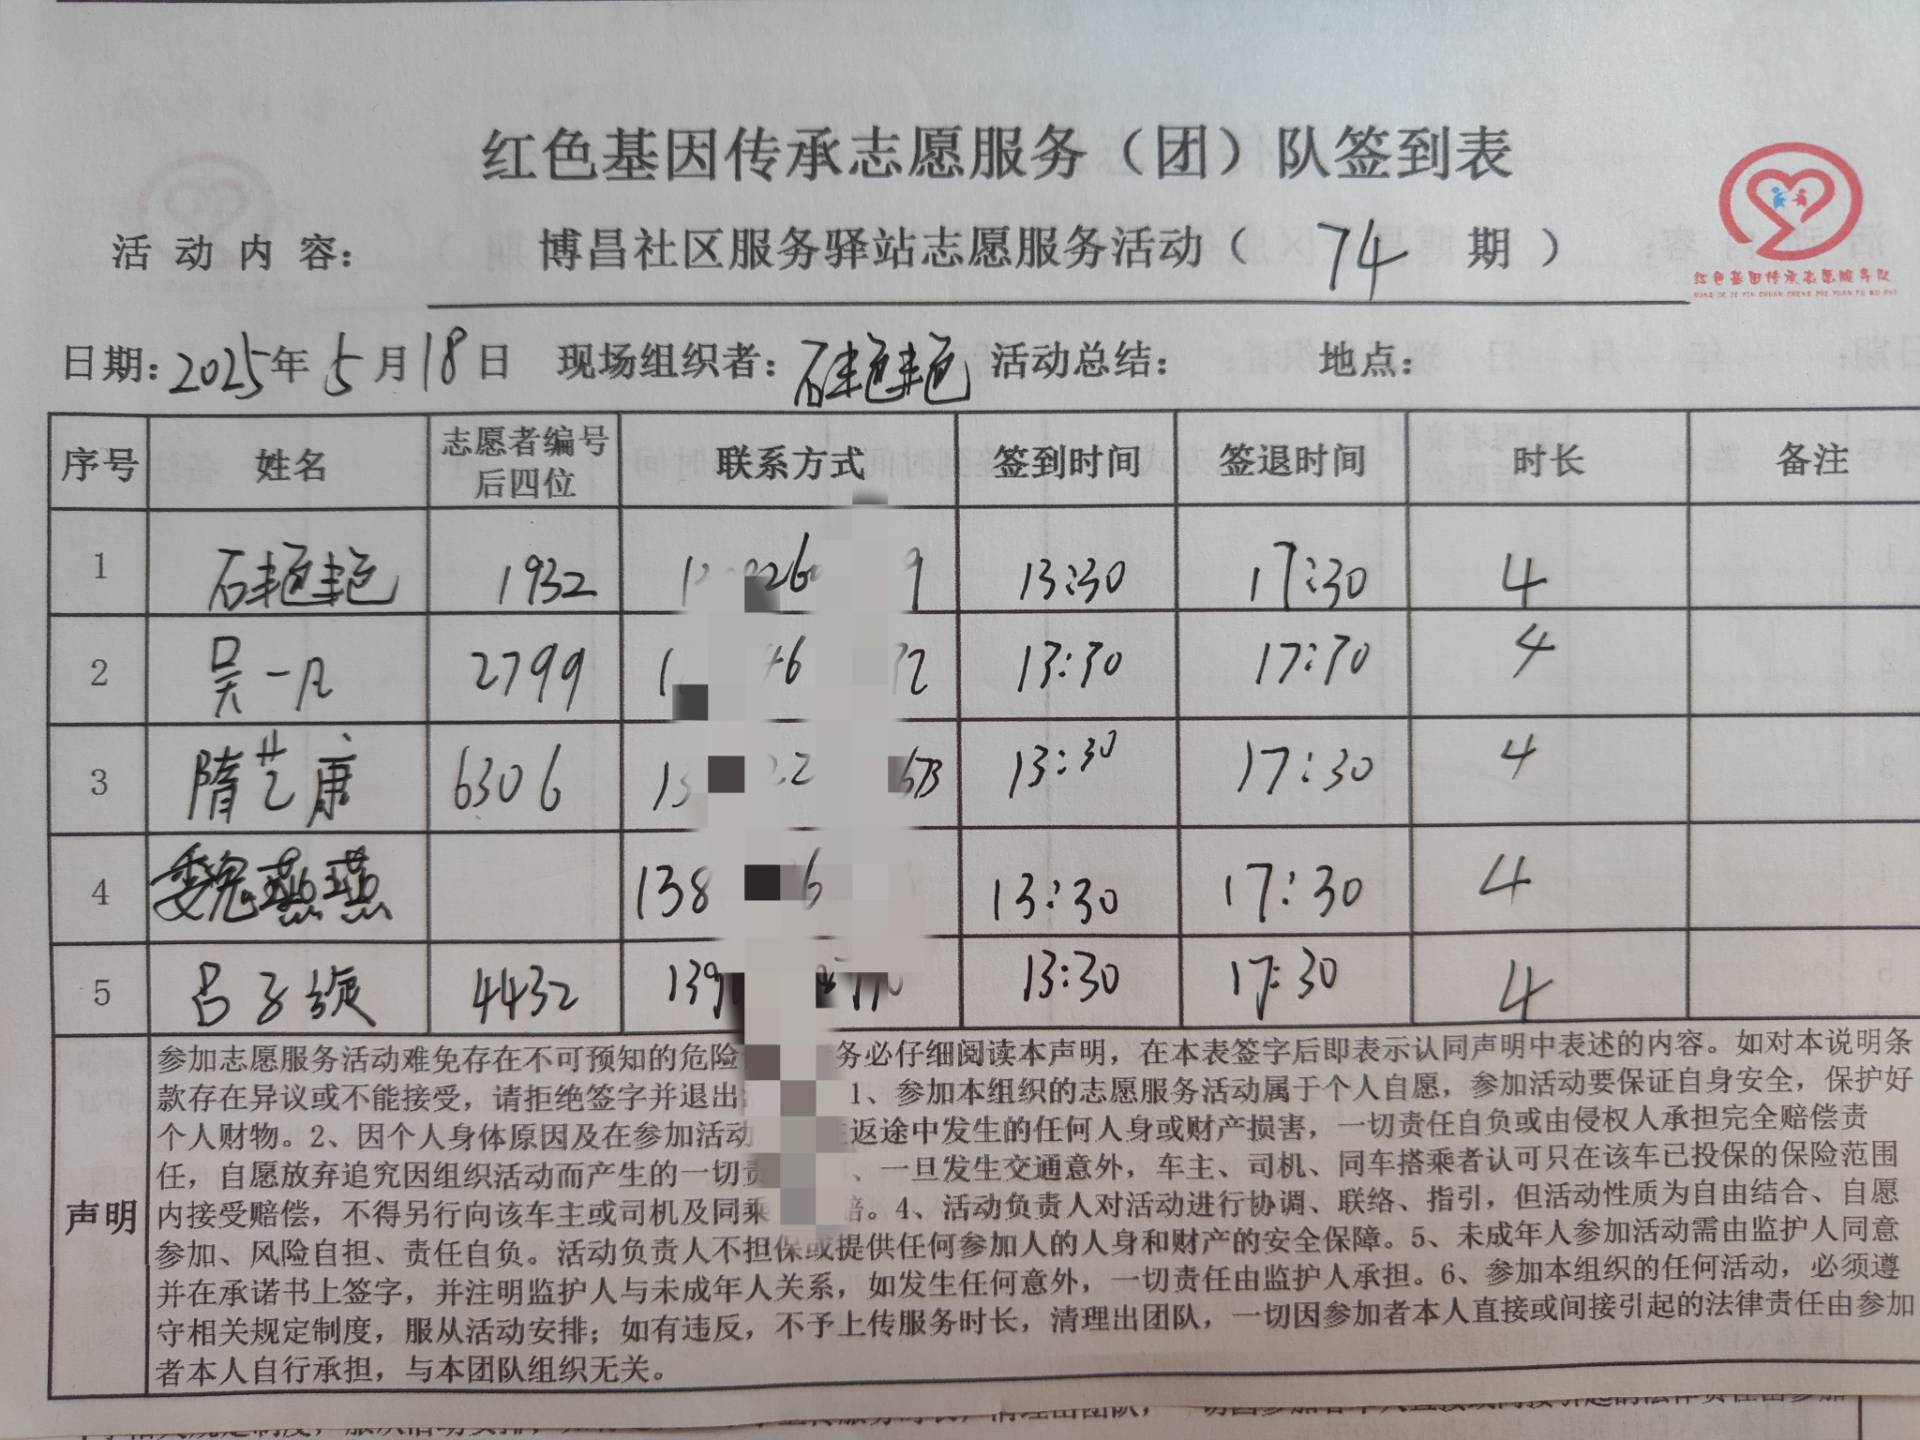 红色基因传承志愿服务（团）队签到表
活动内容： 博昌社区服务驿站志愿服务活动（ 74 期）
红色基因传承志愿服务队
日期：2025年5月18日 现场组织者：石艳艳 活动总结： 地点：
序号 姓名 志愿者编号后四位 联系方式 签到时间 签退时间 时长 备注
1 石艳艳 1932 13:30 17:30 4
2 吴一凡 2799 13:30 17:30 4
3 隋艺康 6306 13:30 17:30 4
4 魏燕燕 138 13:30 17:30 4
5 吕子旋 4432 139 13:30 17:30 4
声明
参加志愿服务活动难免存在不可预知的危险 务必仔细阅读本声明，在本表签字后即表示认同声明中表述的内容。如对本说明条
款存在异议或不能接受，请拒绝签字并退出 1、参加本组织的志愿服务活动属于个人自愿，参加活动要保证自身安全，保护好
个人财物。2、因个人身体原因及在参加活动 返途中发生的任何人身或财产损害，一切责任自负或由侵权人承担完全赔偿责
任，自愿放弃追究因组织活动而产生的一切责 、一旦发生交通意外，车主、司机、同车搭乘者认可只在该车已投保的保险范围
内接受赔偿，不得另行向该车主或司机及同乘 赔。4、活动负责人对活动进行协调、联络、指引，但活动性质为自由结合、自愿
参加、风险自担、责任自负。活动负责人不担保或提供任何参加人的人身和财产的安全保障。5、未成年人参加活动需由监护人同意
并在承诺书上签字，并注明监护人与未成年人关系，如发生任何意外，一切责任由监护人承担。6、参加本组织的任何活动，必须遵
守相关规定制度，服从活动安排；如有违反，不予上传服务时长，清理出团队，一切因参加者本人直接或间接引起的法律责任由参加
者本人自行承担，与本团队组织无关。